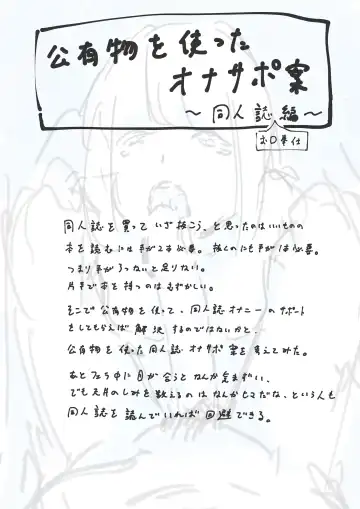 公有物を使った
オナサポ案
～同人誌編～
お口奉仕
同人誌を買っていざ抜こう、と思ったのはいいものの
本を読むには手が2本必要。抜くのにも手が1本必要。
つまり手が3つないと足りない。
片手で本を持つのはむずかしい。
そこで公有物を使って、同人誌オナニーのサポート
をしてもらえば解決するのではないかと、
公有物を使った同人誌オナサポ案を考えてみた。
あとフェラ中に目が合うとなんか気まずい、
でも天井のしみを数えるのはなんかヒマだな、という人も
同人誌を読んでいれば回避できる。